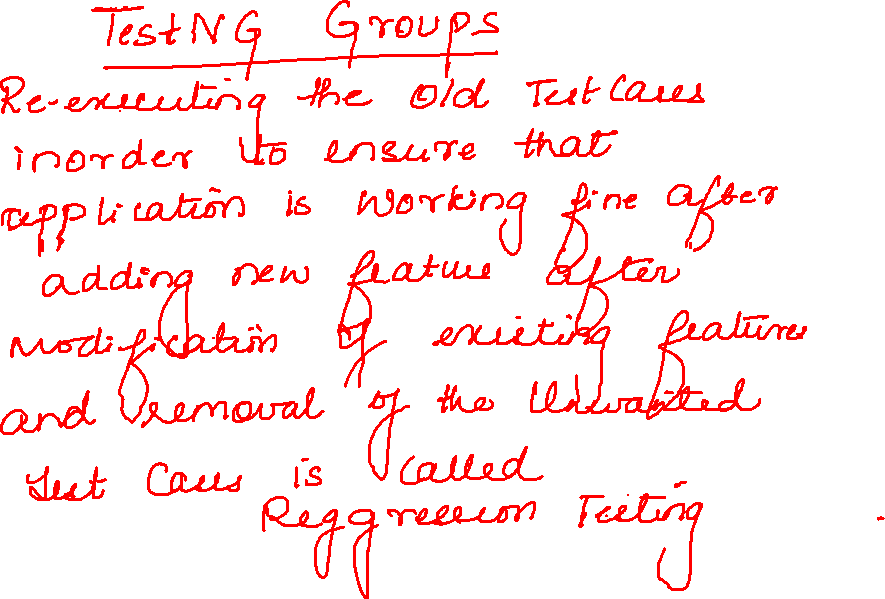 TestNG Groups
Re-executing the old Test Cases
inorder to ensure that
application is working fine after
adding new feature after
modification of existing feature
and removal of the Unwanted
Test Cases is called
Reggression Testing